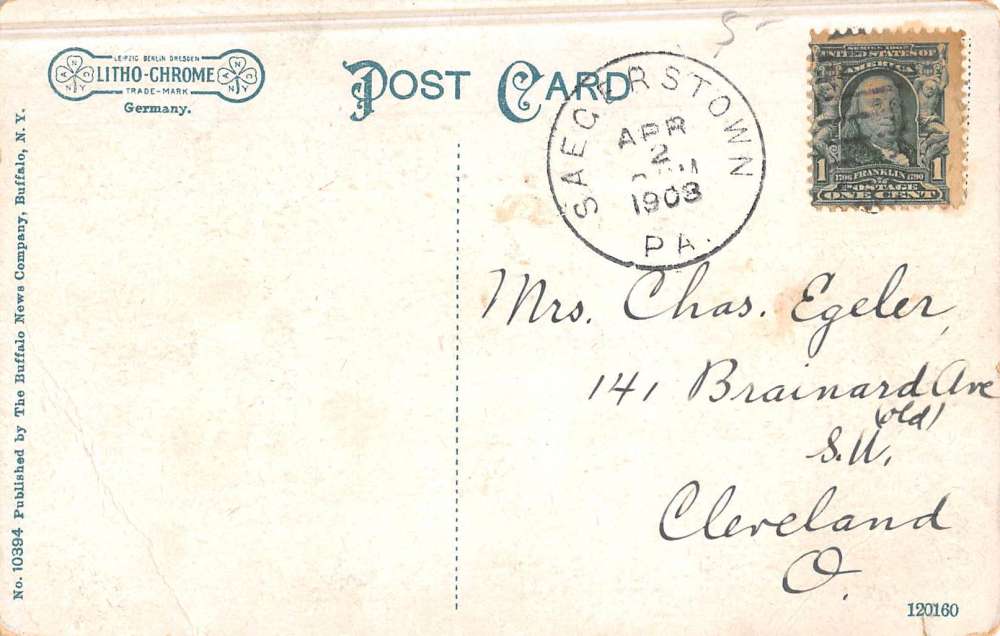 5-
LEIPZIG BERLIN DRESDEN
LITHO-CHROME
TRADE-MARK
Germany.
POST CARD
SAEGERSTOWN
APR
2
1908
PA.
SERIES 1902
UNITED STATES OF
AMERICA
1 1706 FRANKLIN 1790 1
POSTAGE
ONE CENT
Mrs. Chas. Egeler,
141 Brainard Ave
(old)
S.W.
Cleveland
O.
No. 10394 Published by The Buffalo News Company, Buffalo, N. Y.
120160